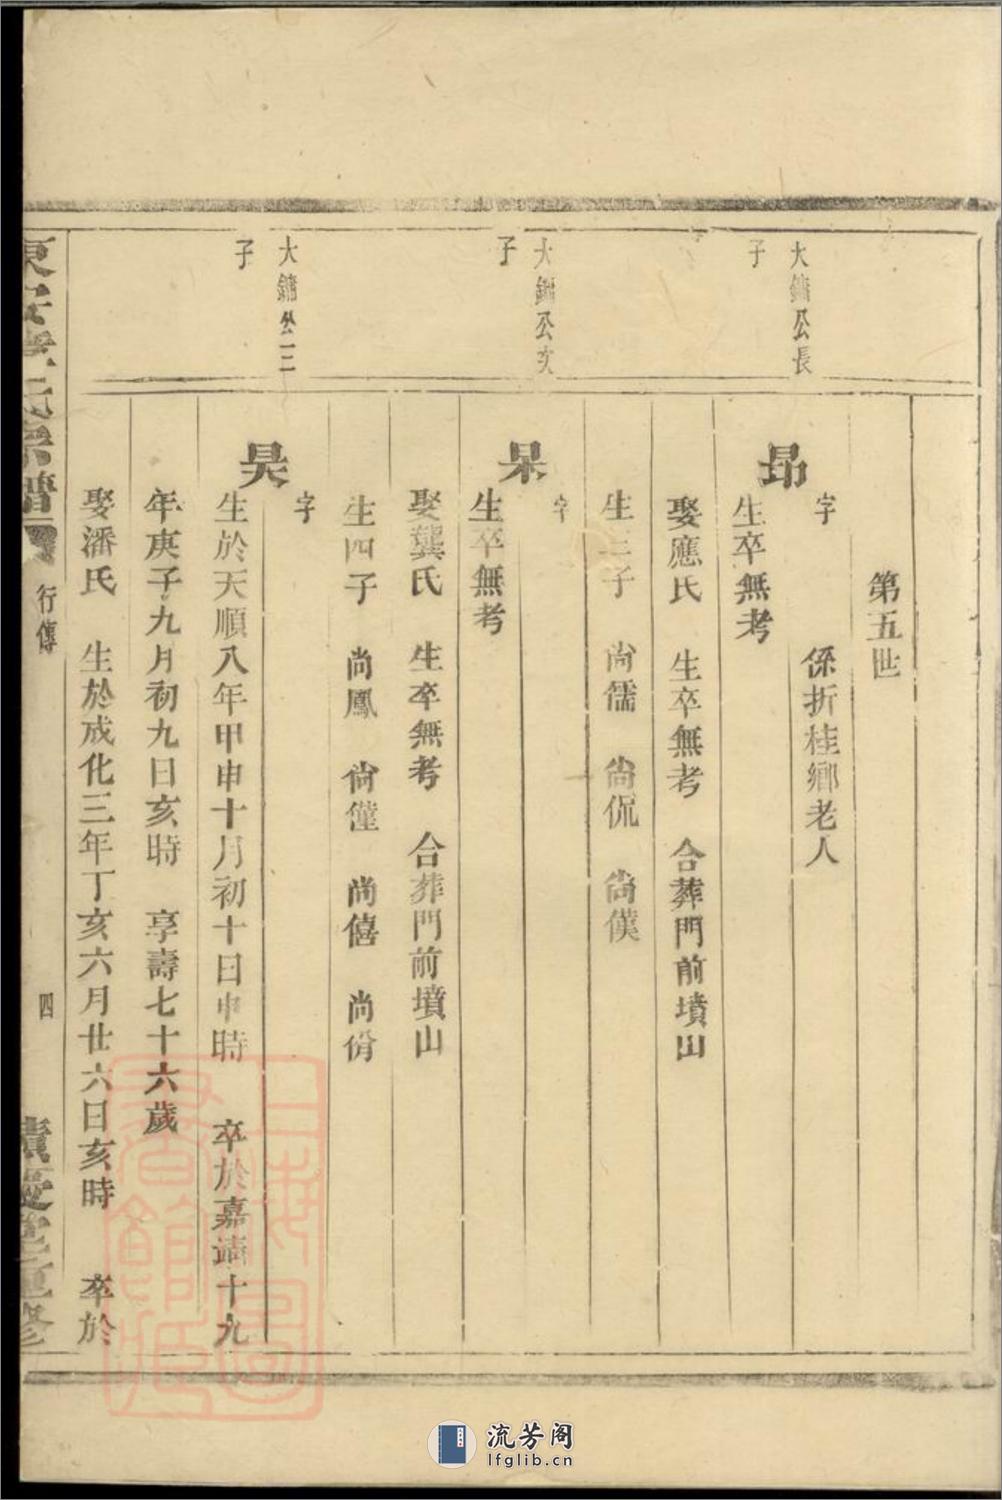 第五世
大鏞公長
子
昻
字
係折桂鄉老人
生卒無考
娶應氏 生卒無考 合葬門前墳山
生三子 尚儒 尚侃 尚僕
大鏞公次
子
杲
字
生卒無考
娶龔氏 生卒無考 合葬門前墳山
生四子 尚鳳 尚僅 尚僖 尚佾
大鏞公三
子
昊
字
生於天順八年甲申十月初十日申時 卒於嘉靖十九
年庚子九月初九日亥時 享壽七十六歲
娶潘氏 生於成化三年丁亥六月廿六日亥時 卒於
氏宗譜
行傳
四
重修
上海圖
書館藏
流芳阁
lfglib.cn